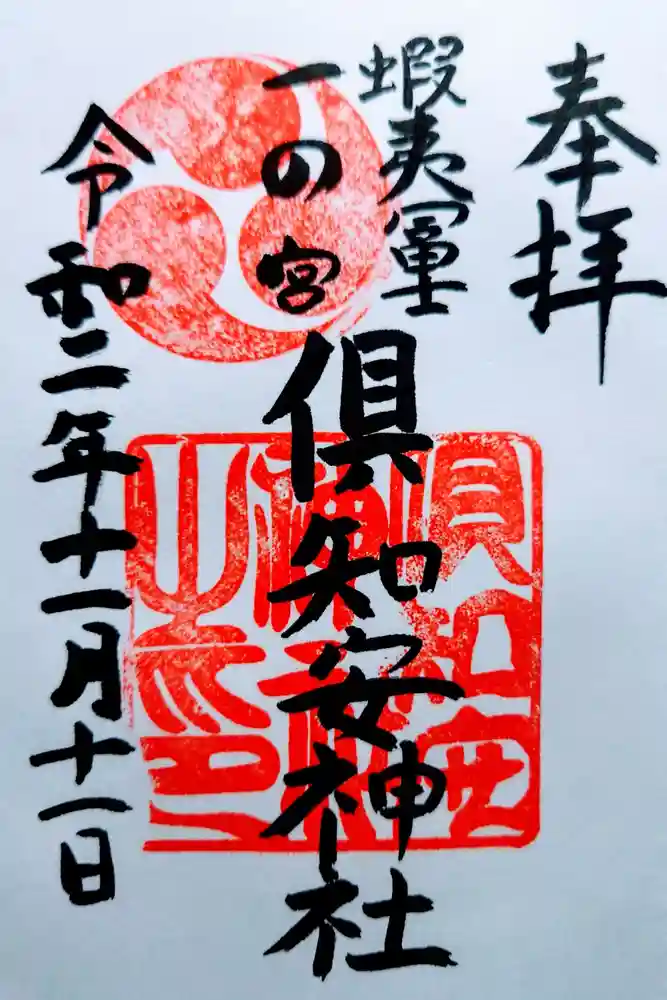 奉拝
蝦夷冨士
一の宮
倶知安神社
令和二年十一月十一日
倶知安
神社
之印